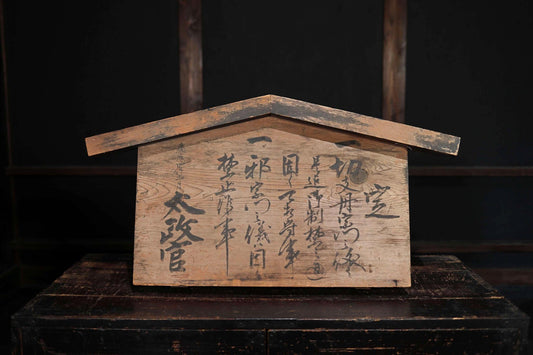 定
一切支丹宗門之儀
是迄御制禁之通
固く可相守事
一邪宗門之儀固く
禁止候事
太政官